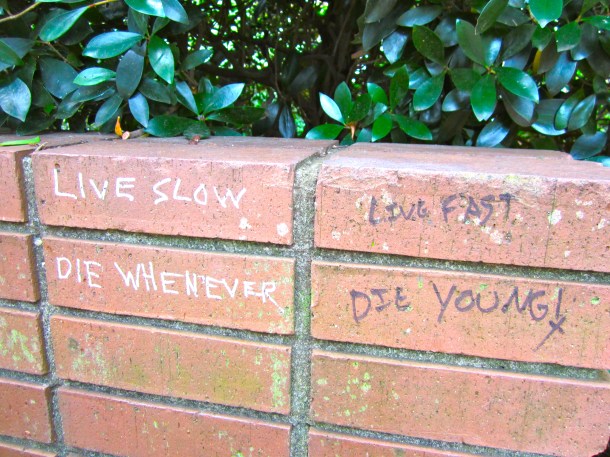 LIVE SLOW
DIE WHEN'EVER
LIVE FAST
DIE YOUNG!
x